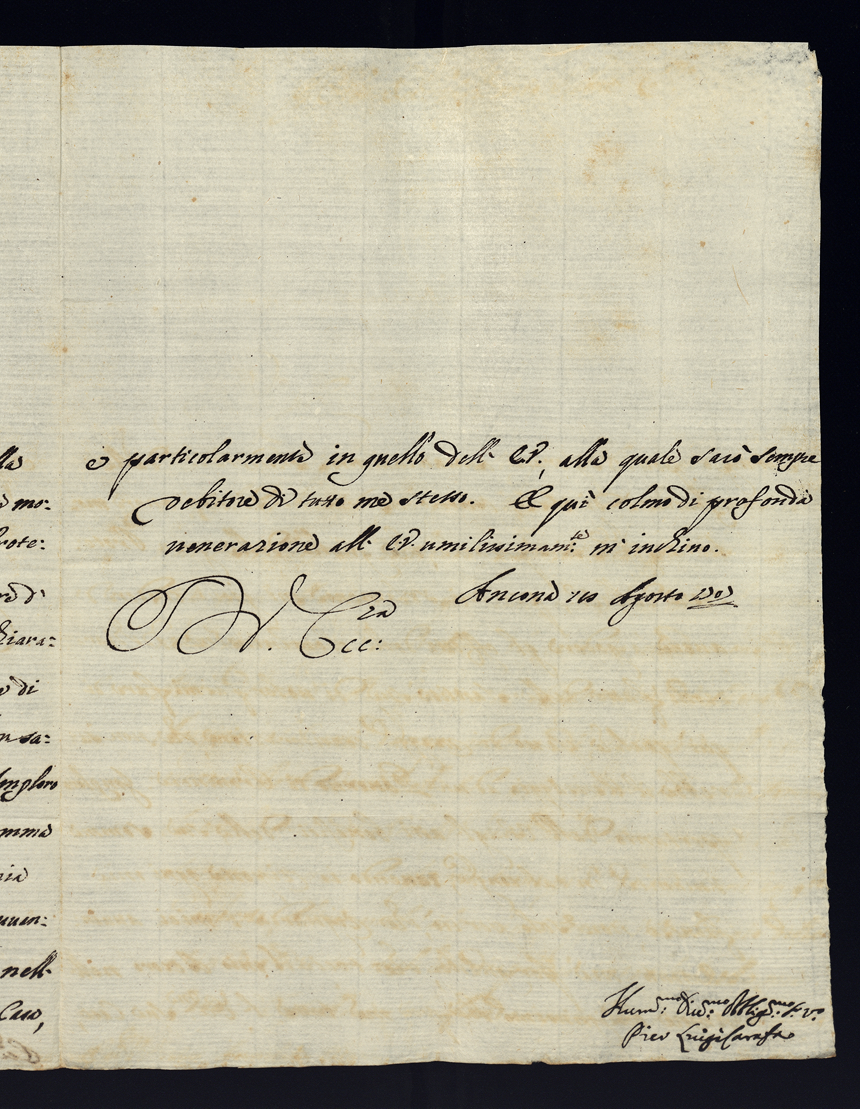 lla
mo:
rote:
di
hiara:
di
n sa:
Imploro
mma
nia
uuen:
nell'
Caso,
e particolarmente in quello dell' E.V., alla quale sarò sempre
debitore di tutto me stesso. E quì colmo di profonda
venerazione all' E.V. umilissimam:te m' inchino.
Ancona Agosto
V. Ecc:za
Hum:mo Diu:mo Obblig:mo S.re
Pier Luigi Carafa